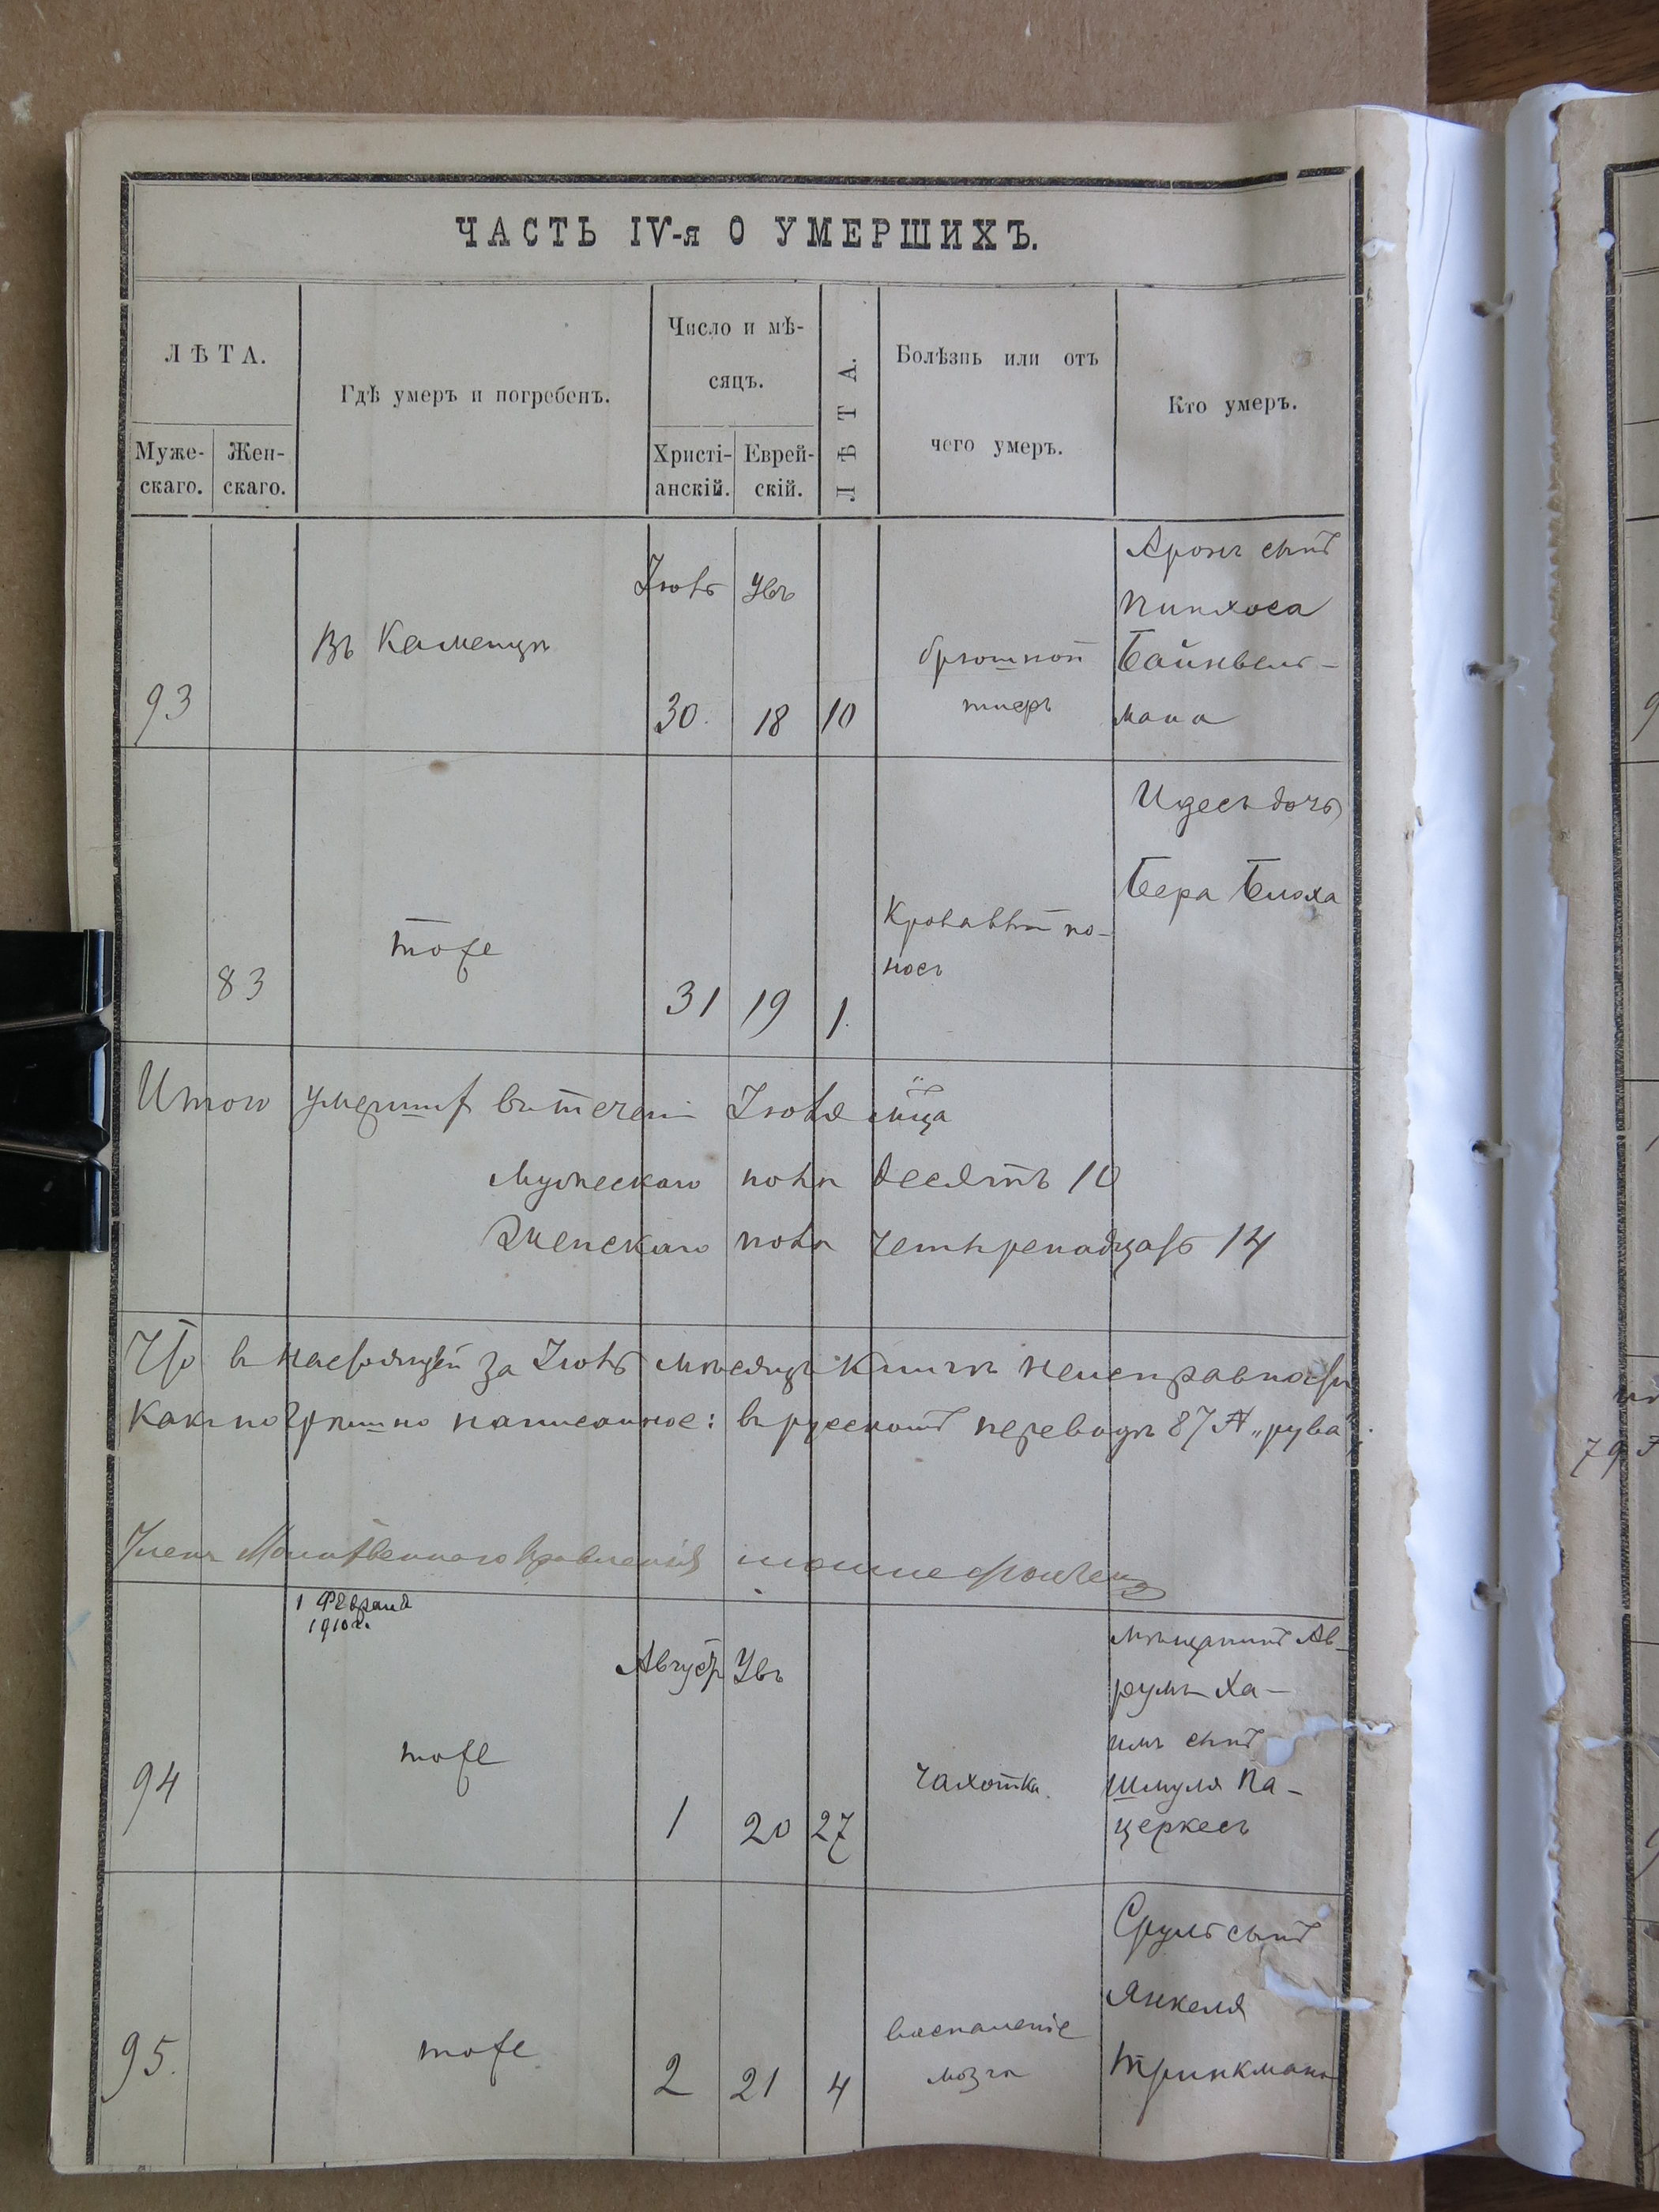 ЧАСТЬ IV-я О УМЕРШИХЪ.
ЛѢТА.
Муже-
скаго.
Жен-
скаго.
Гдѣ умеръ и погребенъ.
Число и мѣ-
сяцъ.
Христі-
анскій.
Еврей-
скій.
ЛѢТА.
Болѣзнь или отъ
чего умеръ.
Кто умеръ.
93
Въ Каменцѣ
Іюль
30.
Увъ
18
10
брюшной
тифъ
Аронъ сынъ
Пинхоса
Вайнвель-
мана
83
тоже
31
19
1.
Кровавый по-
носъ
Идесъ дочь
Бера Блоха
Итого умершихъ въ теченіи Іюля м-ца
Мужескаго пола десять 10
Женскаго пола четырнадцать 14
Что в настоящей за Іюль мѣсяцъ книгѣ неисправности
какъ погрѣшно написанное: въ русскомъ переводѣ 87 № „рува"
Членъ Молитвеннаго Правленія
1 Февраля
1910 г.
94
тоже
Августъ
1
Увъ
20
27
чахотка
мѣщанинъ Ав-
румъ Ха-
имъ сынъ
Шмуля Па-
церкесъ
95.
тоже
2
21
4
воспаленіе
мозга
Сруль сынъ
Янкеля
Тринкмана